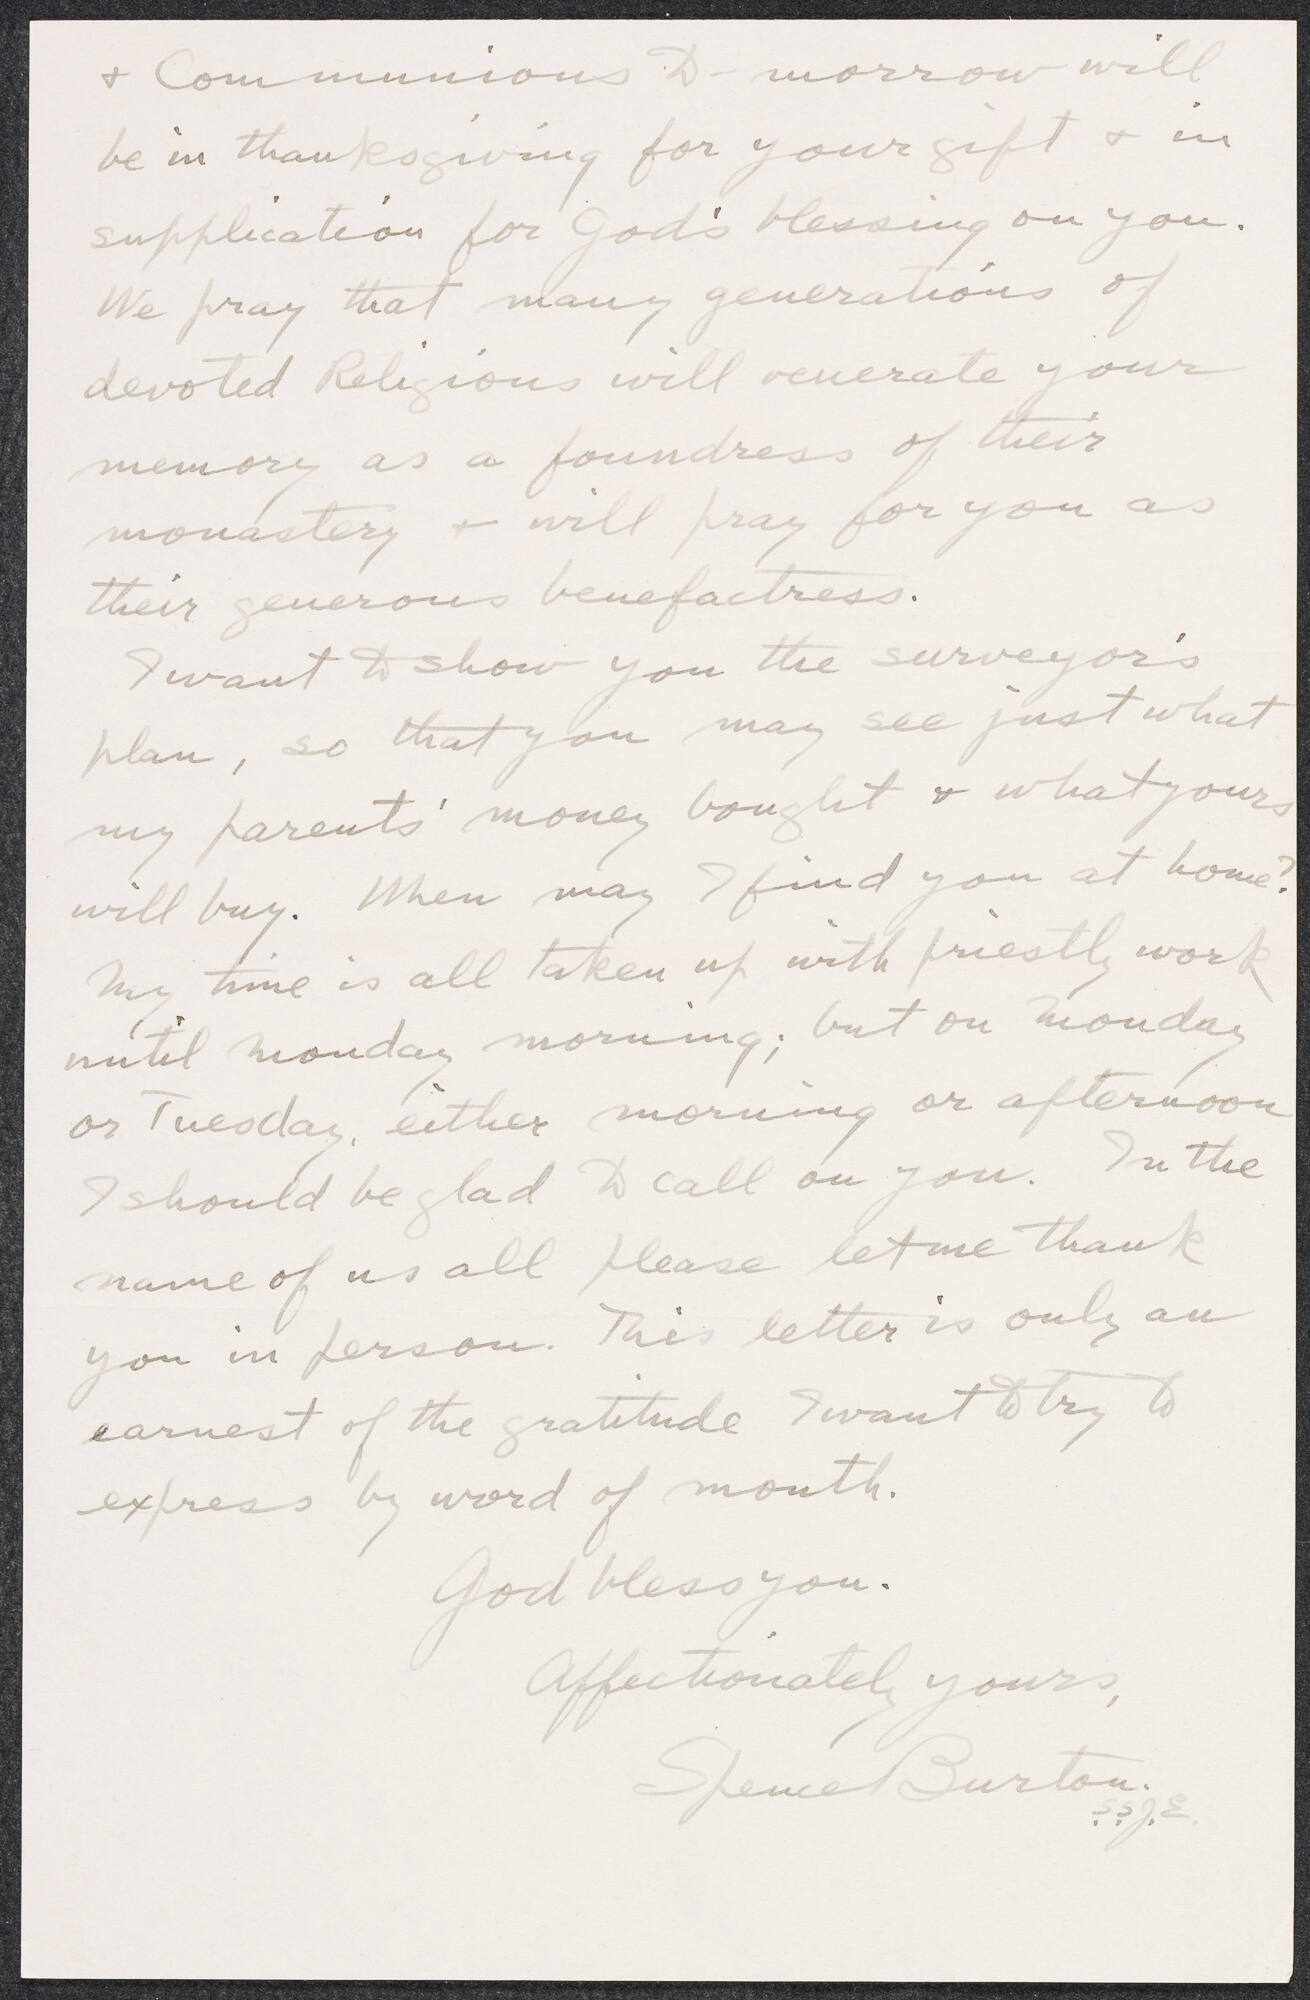 & Communions to-morrow will
be in thanksgiving for your gift & in
supplication for God's blessing on you.
We pray that many generations of
devoted Religious will venerate your
memory as a foundress of their
monastery & will pray for you as
their generous benefactress.
I want to show you the surveyor's
plan, so that you may see just what
my parents' money bought & what yours
will buy. When may I find you at home?
My time is all taken up with priestly work
until Monday morning; but on Monday
or Tuesday, either morning or afternoon
I should be glad to call on you. In the
name of us all please let me thank
you in person. This letter is only an
earnest of the gratitude I want to try to
express by word of mouth.
God bless you.
Affectionately yours,
Spence Burton.
S.S.J.E.